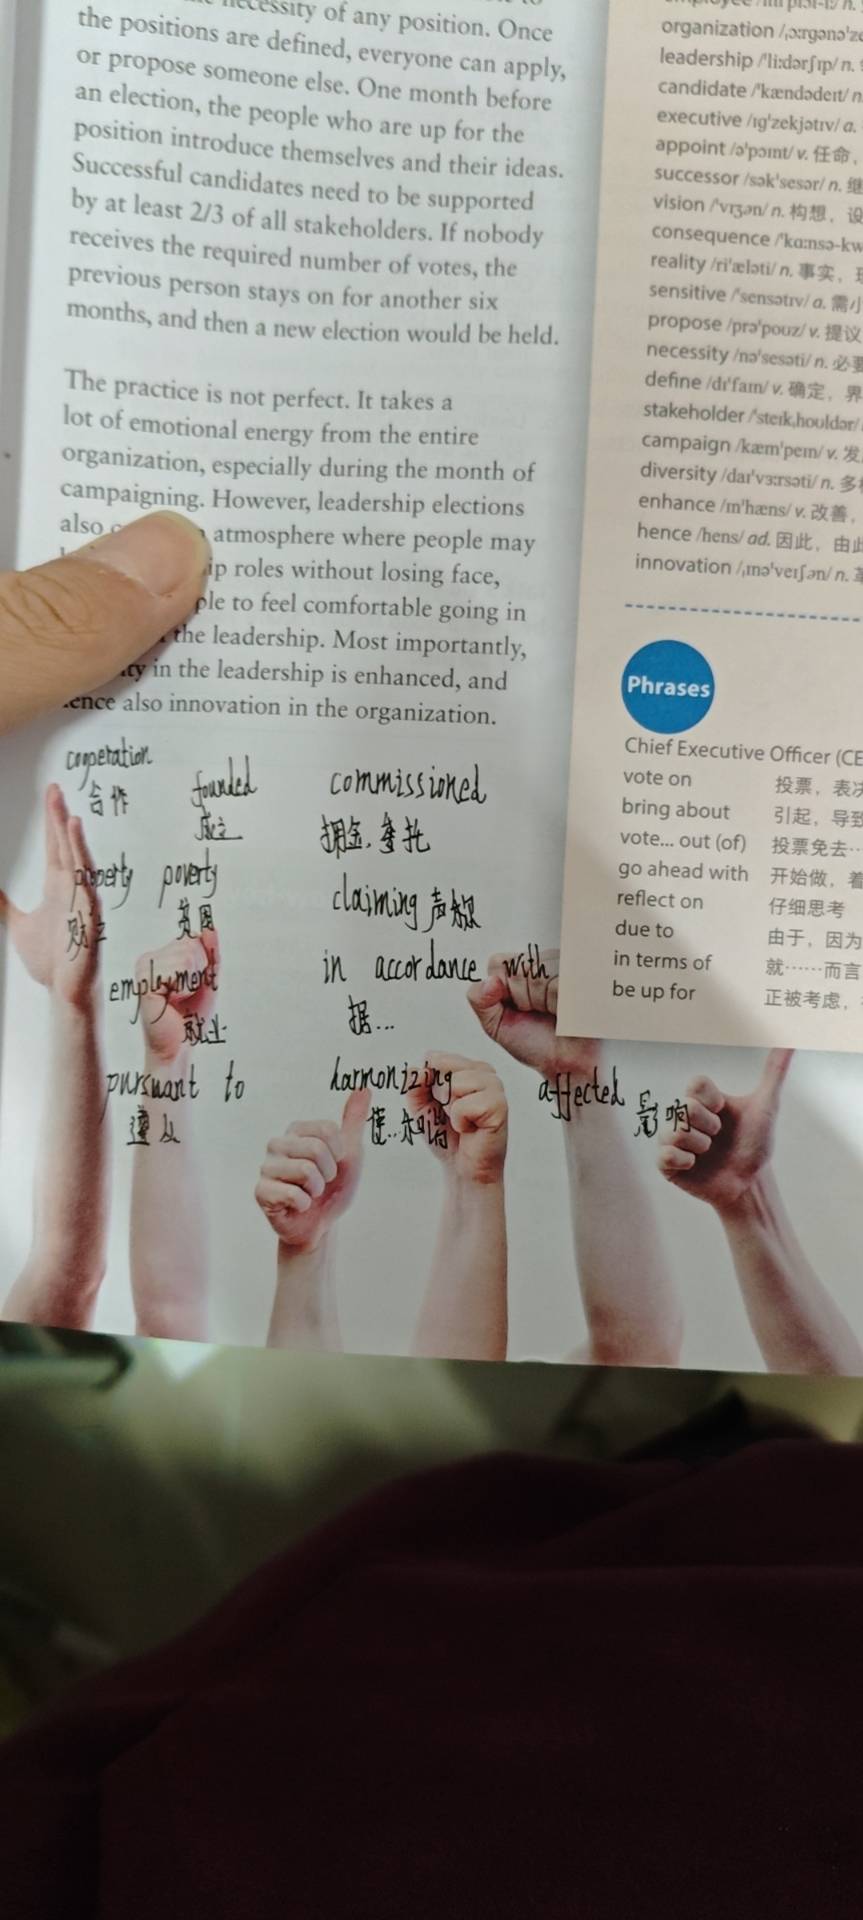 necessity of any position. Once
the positions are defined, everyone can apply,
or propose someone else. One month before
an election, the people who are up for the
position introduce themselves and their ideas.
Successful candidates need to be supported
by at least 2/3 of all stakeholders. If nobody
receives the required number of votes, the
previous person stays on for another six
months, and then a new election would be held.
The practice is not perfect. It takes a
lot of emotional energy from the entire
organization, especially during the month of
campaigning. However, leadership elections
also atmosphere where people may
roles without losing face,
to feel comfortable going in
the leadership. Most importantly,
in the leadership is enhanced, and
also innovation in the organization.
organization
leadership /'li:dərʃɪp/ n.
candidate /'kændədeɪt/ n
executive /ɪg'zekjətɪv/ a.
appoint /ə'pɔɪnt/ v. 任命，
successor /sək'sesər/ n. 继
vision /'vɪʒən/ n. 构想，设
consequence /'kɑ:nsə-kw
reality /ri'æləti/ n. 事实，现
sensitive /'sensətɪv/ a. 需小
propose /prə'poʊz/ v. 提议
necessity /nə'sesəti/ n. 必要
define /dɪ'faɪn/ v. 确定，界
stakeholder /'steɪk,hoʊldər/
campaign /kæm'peɪn/ v. 发
diversity /daɪ'vɜ:rsəti/ n. 多
enhance /ɪn'hæns/ v. 改善，
hence /hens/ ad. 因此，由此
innovation /,ɪnə'veɪʃən/ n. 革
Phrases
Chief Executive Officer (CE
vote on 投票，表决
bring about 引起，导致
vote... out (of) 投票免去…
go ahead with 开始做，着
reflect on 仔细思考
due to 由于，因为
in terms of 就……而言
be up for 正被考虑，
cooperation
合作
founded
成立
commissioned
佣金，委托
property poverty
财产 贫困
claiming 声称
employment
就业
in accordance with
据...
pursuant to
遵从
harmonizing
使..和谐
affected 影响